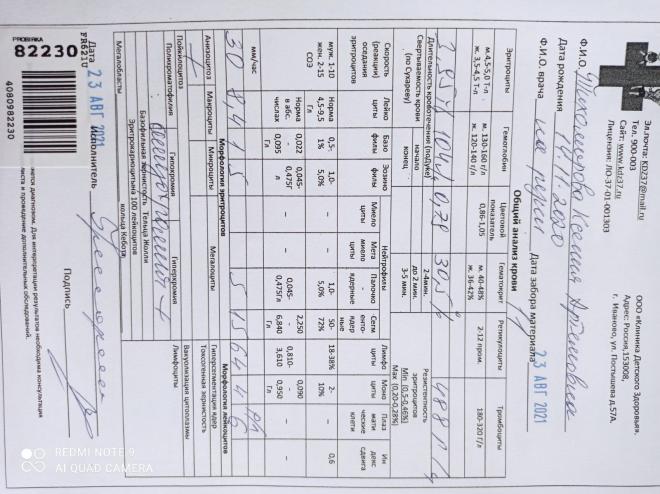 Эл.почта: kdz37@mail.ru
Тел. 900-003
Сайт: www.kdz37.ru
Лицензия: ЛО-37-01-001303
ООО «Клиника Детского Здоровья».
Адрес: Россия, 153008,
г. Иваново, ул. Постышева д.57А.
Ф.И.О. Ксения Артемовна
Дата рождения 14.11.2020
Ф.И.О. врача
Дата забора материала 23 АВГ 2021
Общий анализ крови
Эритроциты
Гемоглобин
Цветовой показатель
Гематокрит
Ретикулоциты
Тромбоциты
м. 4,5-5,0 Т-л
ж. 3,5-4,5 Т-л
м. 130-160 г/л
ж. 120-140 г/л
0,86-1,05
м. 40-48%
ж. 36-42%
2-12 пром.
180-320 Г/л
3,95 Т/л 104 г/л 0,79 30,5% 488 Г/л
Длительность кровотечения (подуке)
2-4мин.
Резистентность эритроцитов
Свертываемость крови (по Сухареву)
начало
до 2 мин.
Min (0,5-0,46%)
конец
3-5 мин.
Max (0,20-0,28%)
Скорость (реакции) оседания эритроцитов
Лейко циты
Базо филы
Эозино филы
Нейтрофилы
Миело циты
Мета миело циты
Палочко ядерные
Сегм енто- ядер ные
Лимфо циты
Моно циты
Плаз мати ческие клетки
Ин декс сдвига
муж. 1-10
жен. 2-15
СОЭ
Норма
4,5-9,5
Гл
0,5-
1%
1,0-
5,0%
-
-
1,0-
5,0%
50-
72%
18-38%
2-
10%
0,6
Норма в абс. числах
0,022
0,095
0,045-
0,475Г
л
-
-
0,045-
0,475Гл
2,250
6,840
Гл
0,810-
3,610
Гл
0,090
0,950
Гл
мм/час
30 8,4 1 5 5 15 64 4
Морфология эритроцитов
Морфология лейкоцитов
Анизоцитоз +
Макроциты
Микроциты
Мегалоциты
Гиперсегментация ядер
Пойкилоцитоз
Токсогенная зернистость
Полихроматофилия
Гипохромия
Гиперхромия
Вакуолизация цитоплазмы
Базофильная зернистость
Тельца Жолли
кольца Кебота
Лимфоциты
Эритрокариоцитына 100 лейкоцитов
Мегалобласты
Дата 23 АВГ 2021
Исполнитель
Подпись
PROBIRKA
82230
4080982230
яется диагнозом. Для интерпретации результатов необходима консультация
листа и проведение дополнительных обследований.
REDMI NOTE 9
AI QUAD CAMERA